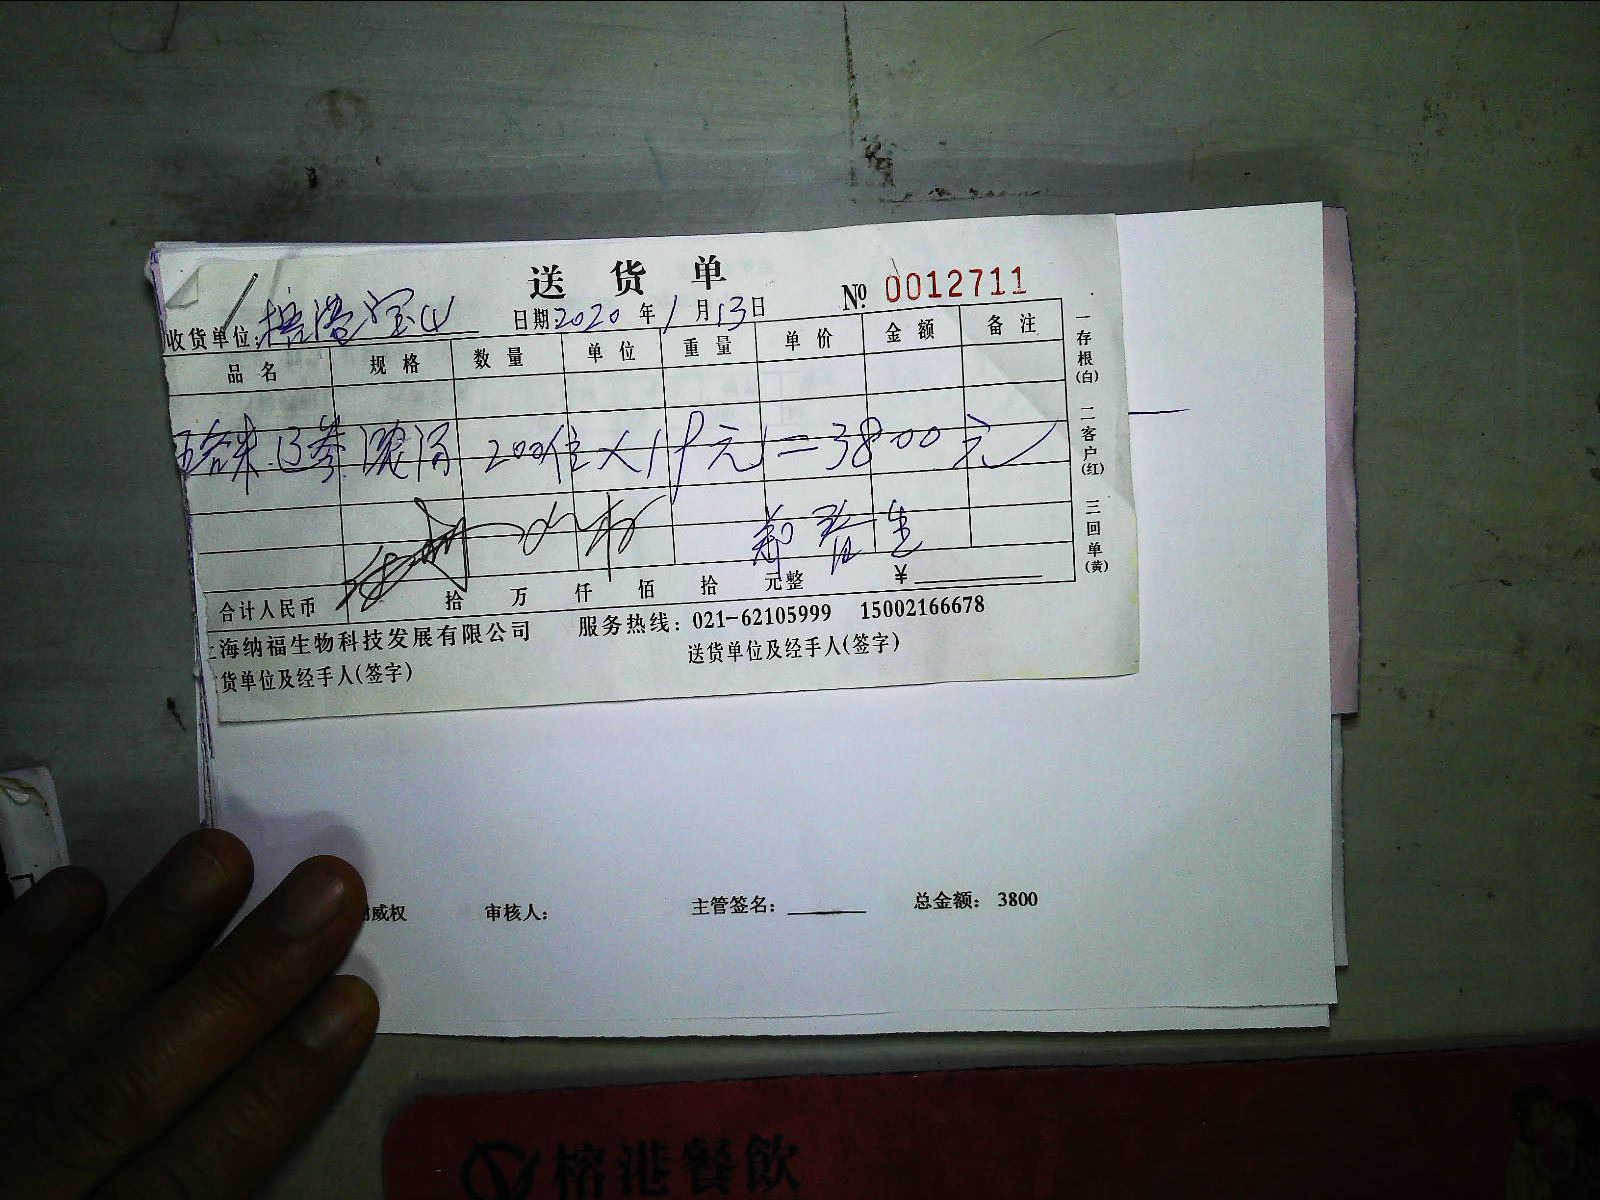 送货单
№ 0012711
收货单位: 榕港宝山 日期: 2020 年 1 月 13 日
品名 规格 数量 单位 重量 单价 金额 备注
辽参 200位×19元=3800元
合计人民币 拾 万 仟 佰 拾 元整 ¥
上海纳福生物科技发展有限公司 服务热线: 021-62105999 15002166678
货单位及经手人(签字) 送货单位及经手人(签字)
一存根(白) 二客户(红) 三回单(黄)
威权 审核人: 主管签名: 总金额: 3800
榕港餐飲